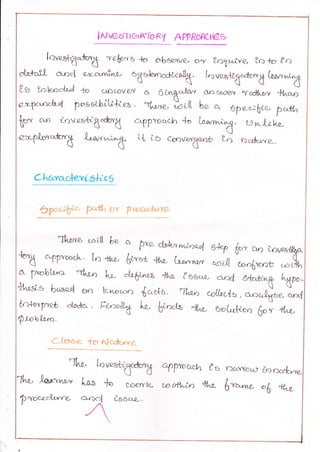 INVESTIGATORY APPROACHES
Investigatory refers to observe or inquire, into in
detail and examine systematically. Investigatory learning
is intended to uncover a singular answer rather than
expanded possibilities. There will be a specific path
for an investigatory approach to learning. Unlike
exploratory learning, it is convergent in nature.
Characteristics
Specific path or procedure
There will be a pre determined step for an investiga
tory approach. In the first the learner will confront with
a problem. Then he defines the issue and stating hypo-
thesis based on known facts. Then collects, analyse and
interpret data. Finally he finds the solution for the
problem.
Close to Nature
The investigatory approach is narrow in nature
The learner has to work within the frame of the
procedure and issue.